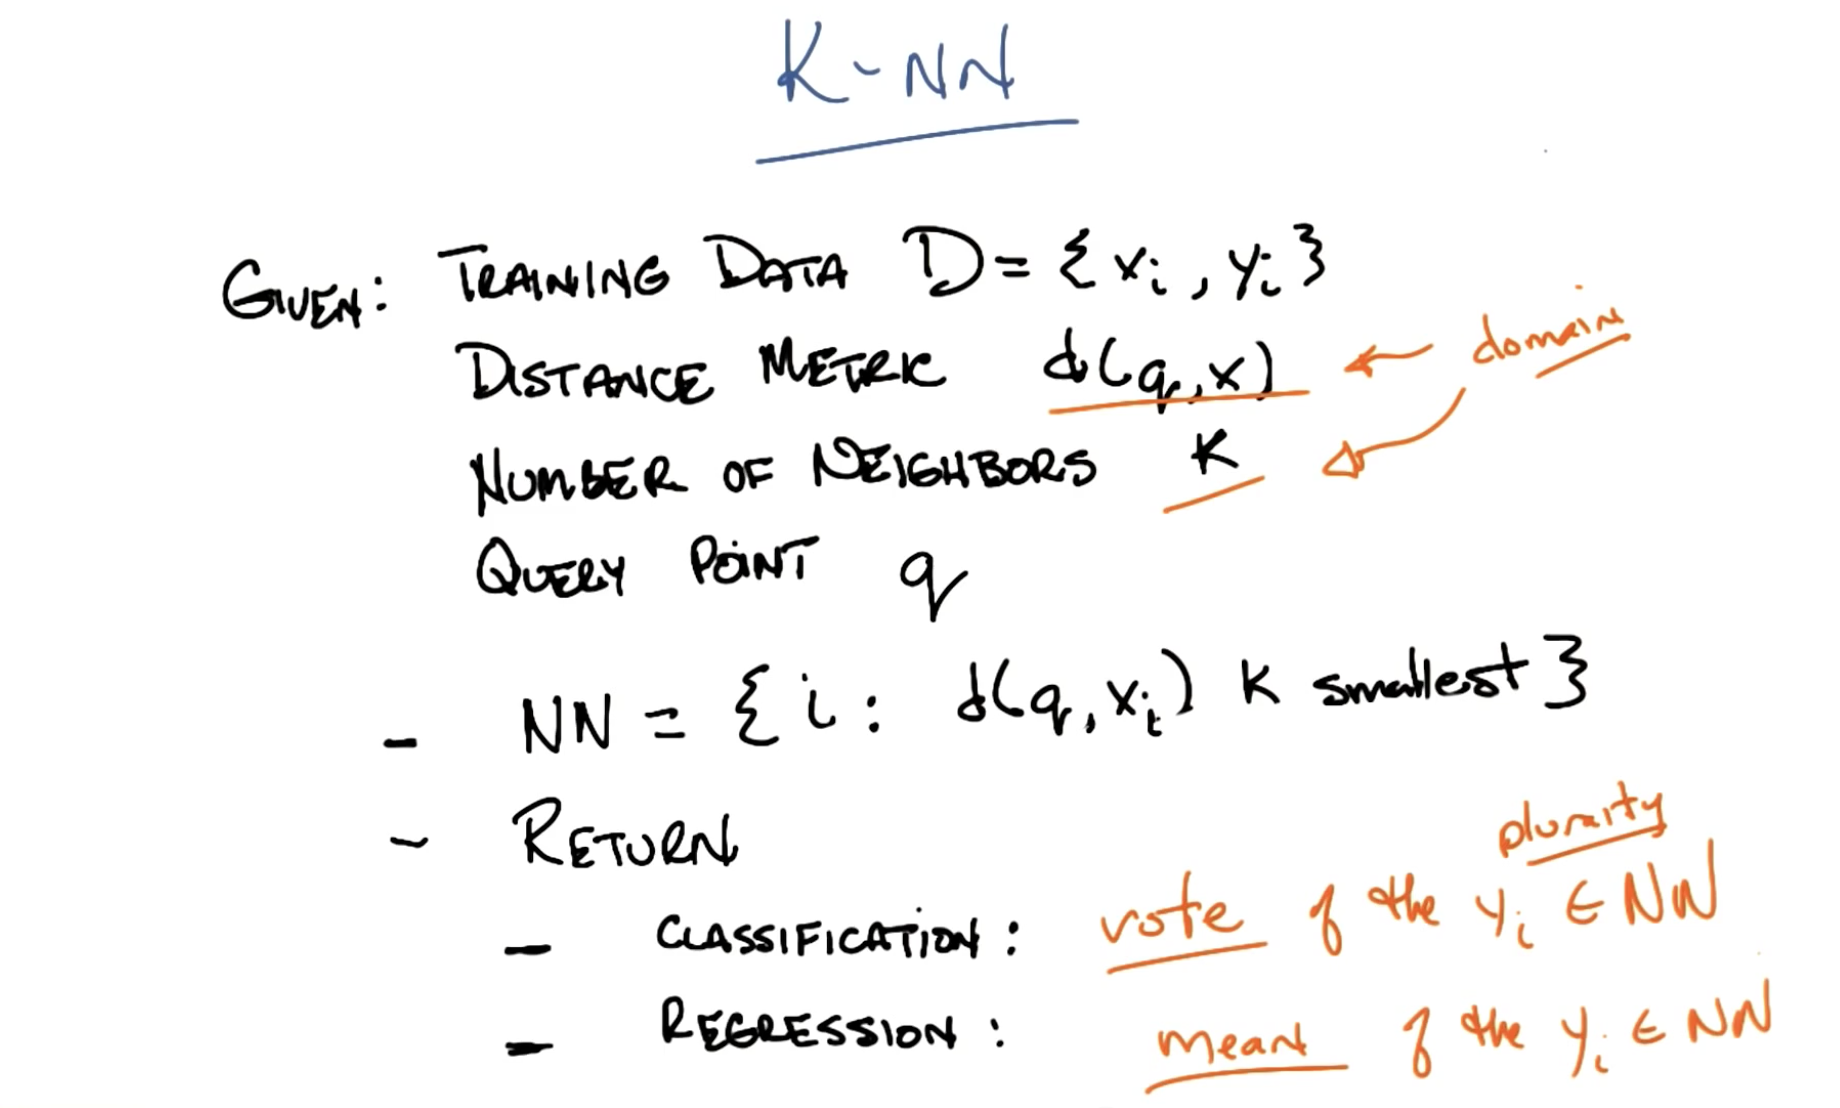 K-NN
GIVEN: TRAINING DATA D = { xi , yi }
DISTANCE METRIC d(q,x) ← domain
NUMBER OF NEIGHBORS K
QUERY POINT q
- NN = { i : d(q, xi) K smallest }
- RETURN
plurality
- CLASSIFICATION : vote of the yi ∈ NN
- REGRESSION : mean of the yi ∈ NN